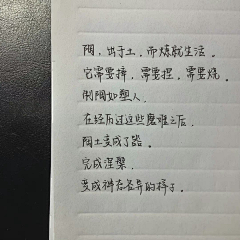 陶，出于土，而炼就生活。
它需要摔，需要捏，需要烧。
制陶如塑人，
在经历过这些磨难之后，
陶土变成了器。
完成涅槃，
变成神态各异的样子。